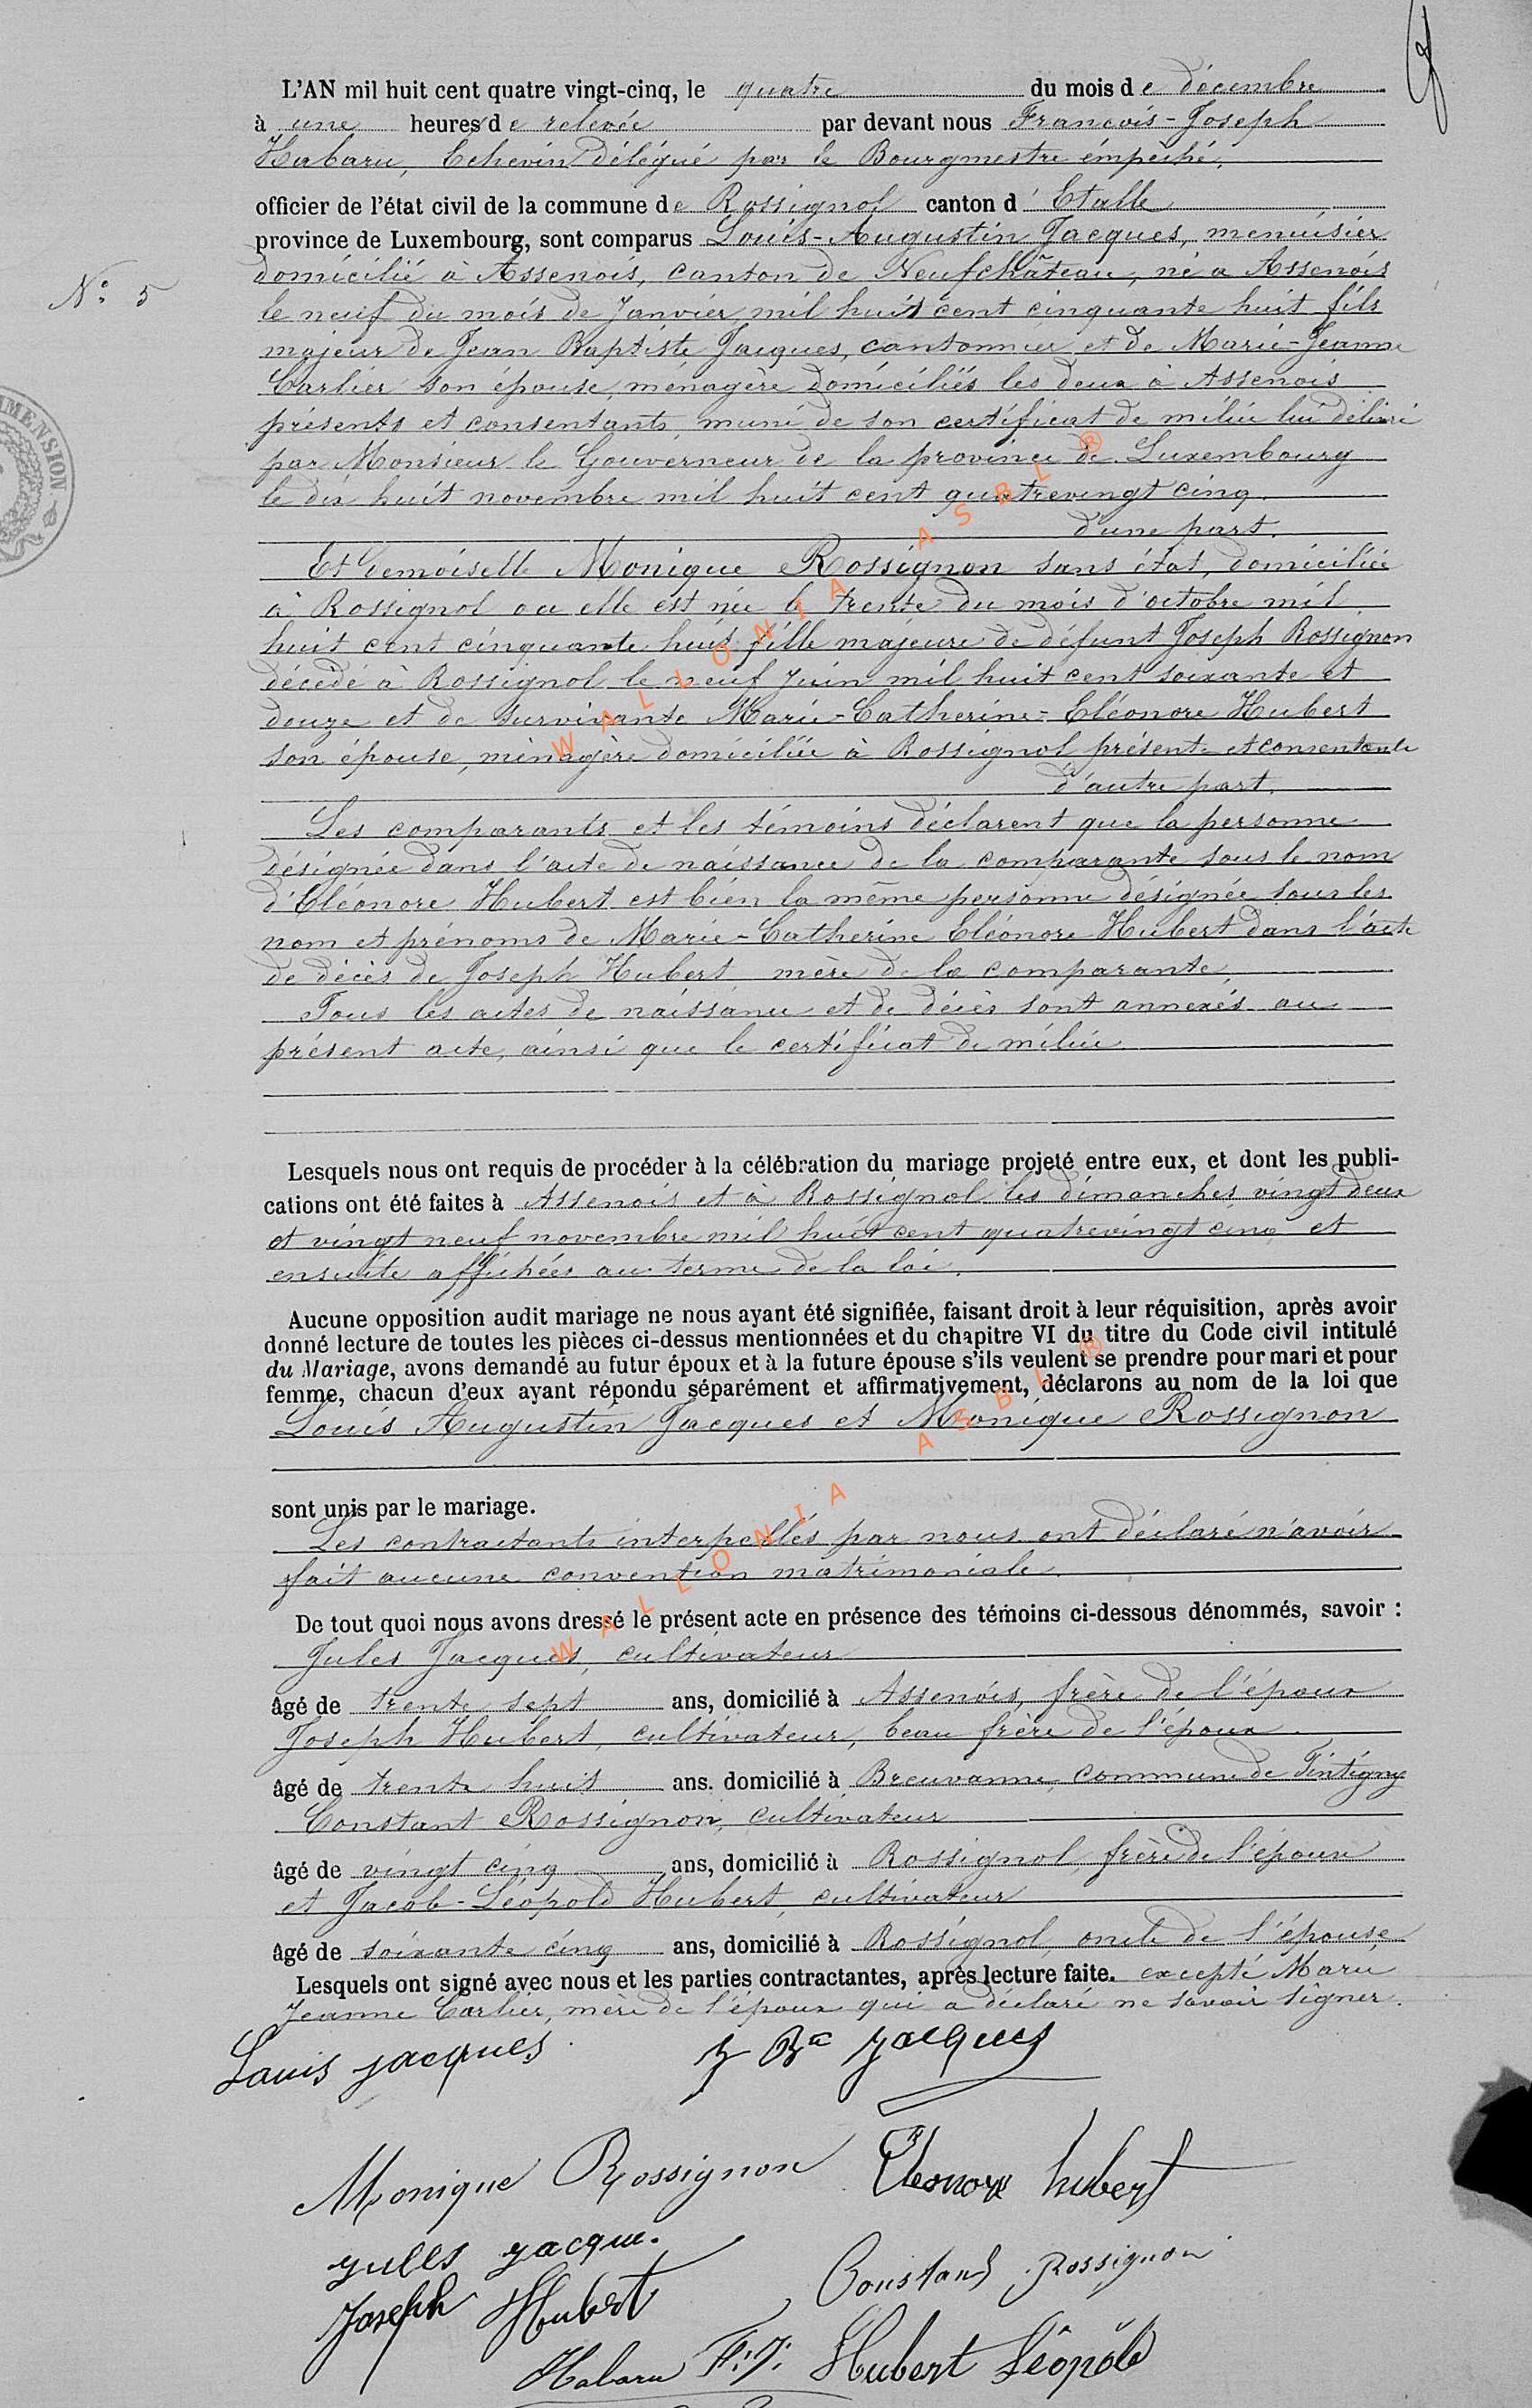 L'AN mil huit cent quatre vingt-cinq, le quatre du mois de décembre
à une heures de relevée par devant nous François-Joseph
Habaru, Echevin délégué par le Bourgmestre émpêché,
officier de l'état civil de la commune de Rossignol canton d'Etalle
province de Luxembourg, sont comparus Louis-Augustin Jacques, menuisier
domicilié à Assenois, canton de Neufchâteau, né a Assenois
N° 5
le neuf du mois de Janvier mil huit cent cinquante huit fils
majeur de Jean Baptiste Jacques, cantonnier et de Marie-Jeanne
Carlier son épouse, ménagère domiciliés les deux à Assenois
présents et consentants, muni de son certificat de milice lui délivré
par Monsieur le Gouverneur de la province de Luxembourg
le dix huit novembre mil huit cent quatrevingt cinq.
d'une part.
Et Demoiselle Monique Rossignon sans état, domiciliée
à Rossignol ou elle est née le trente du mois d'octobre mil
huit cent cinquante huit fille majeure de défunt Joseph Rossignon
décédé à Rossignol le neuf juin mil huit cent soixante et
douze et de survivante Marie-Catherine-Eléonore Hubert
son épouse, ménagère domiciliée à Rossignol présente et consentante
d'autre part.
Les comparants et les témoins déclarent que la personne
désignée dans l'acte de naissance de la comparante sous le nom
d'Eléonore Hubert est bien la même personne désignée sous les
nom et prénoms de Marie-Catherine Eléonore Hubert dans l'acte
de décès de Joseph Hubert mère de la comparante
Tous les actes de naissance et de décès sont annexés au
présent acte, ainsi que le certificat de milice
Lesquels nous ont requis de procéder à la célébration du mariage projeté entre eux, et dont les publi-
cations ont été faites à Assenois et à Rossignol les dimanches vingt deux
et vingt neuf novembre mil huit cent quatrevingt cinq et
ensuite affichées au terme de la loi.
Aucune opposition audit mariage ne nous ayant été signifiée, faisant droit à leur réquisition, après avoir
donné lecture de toutes les pièces ci-dessus mentionnées et du chapitre VI du titre du Code civil intitulé
du Mariage, avons demandé au futur époux et à la future épouse s'ils veulent se prendre pour mari et pour
femme, chacun d'eux ayant répondu séparément et affirmativement, déclarons au nom de la loi que
Louis Augustin Jacques et Monique Rossignon
sont unis par le mariage.
Les contractants interpellés par nous ont déclaré n'avoir
fait aucune convention matrimoniale.
De tout quoi nous avons dressé le présent acte en présence des témoins ci-dessous dénommés, savoir :
Jules Jacques, cultivateur
âgé de trente sept ans, domicilié à Assenois, frère de l'époux
Joseph Hubert, cultivateur, beau frère de l'époux.
âgé de trente huit ans. domicilié à Breuvanne, commune de Tintigny
Constant Rossignon, cultivateur
âgé de vingt cinq ans, domicilié à Rossignol, frère de l'épouse
et Jacob-Léopold Hubert, cultivateur
âgé de soixante cinq ans, domicilié à Rossignol, oncle de l'épouse
Lesquels ont signé avec nous et les parties contractantes, après lecture faite. excepté Marie
Jeanne Carlier, mère de l'époux qui a déclaré ne savoir signer.
Louis jacques J Bte jacques
Monique Rossignon Eléonore hubert
jules jacque.
Joseph Hubert Constant Rossignon
Habaru F:J: Hubert Léopold
WALLONIA ASBL ®
WALLONIA ASBL ®
MENSION